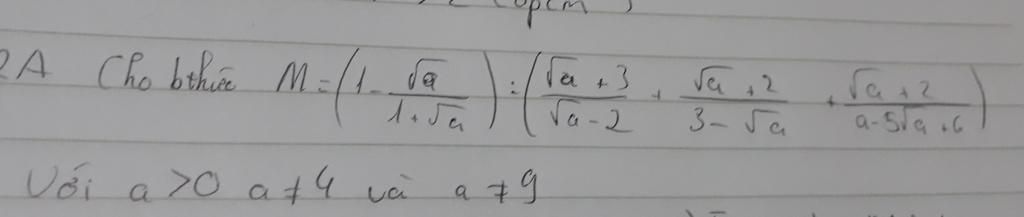 (đpcm)
2A Cho bthức M = (1 - √a/(1+√a)) : ((√a + 3)/(√a - 2) + (√a + 2)/(3 - √a) + (√a + 2)/(a - 5√a + 6))
Với a > 0 a ≠ 4 và a ≠ 9